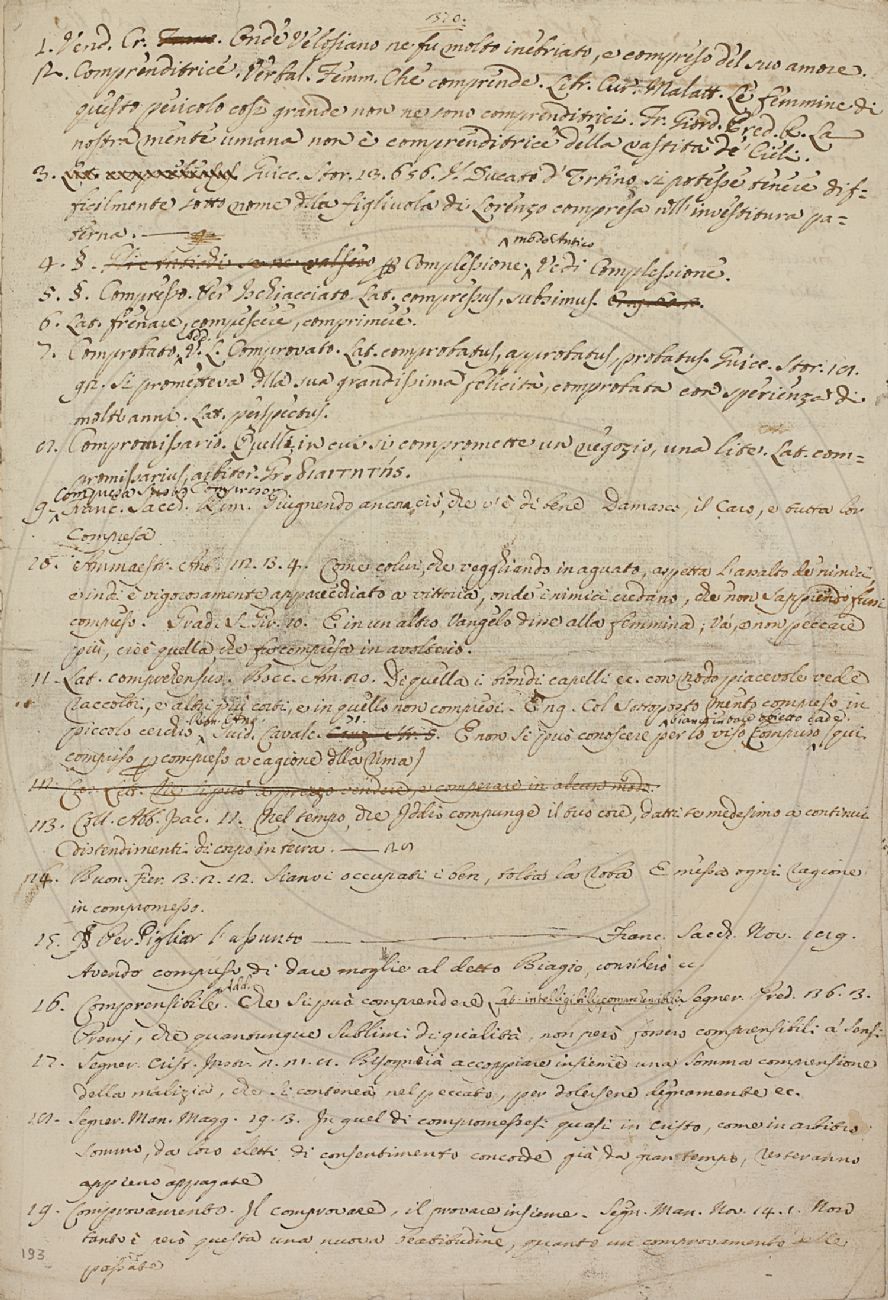 1. Vend. Cr. Onde Velosiano ne fu molto inebriato, e compreso del suo amore.
12. Comprenditrice. Verbal. Femm. Che comprende. Libr. Cur. Malatt. Le femmine di
questo pericolo così grande non ne sono comprenditrici. Fr. Giord. Pred. R. La
nostra mente umana non è comprenditrice della vastità de' Cieli.
3. Guicc. Stor. 13. 656. Il Ducato d'Urbino si potesse tenere dif=
ficilmente sotto nome della figliuola di Lorenzo compresa nell'investitura pa=
terna.
4. §. Complessione, modo Antico Vedi Complessione.
5. §. Compresso. Per Ischiacciato. Lat. compressus,
6. Lat. frenare, compescere, comprimere.
7. Comprobato, Add. V. L. Comprovato. Lat. comprobatus, approbatus, probatus. Guicc. Stor.
Si prometteva della sua grandissima felicità, comprobata con esperienza di
molti anni. Lat. perspectus.
Compromissario. Quelli, in cui si compromette un negozio, una lite. Lat. com=
promissarius, arbiter. Gr. διαιτητής.
9. Franc. Sacch. Rim. Pugnendo ancora ciò, che v'è di bene Damasco, il Caro, e tutta lor
Compresa
10. Ammaestr. Ant. 12. 3. 4. Come colui, che vegghiando in aguato, aspetta l'assalto de' nimici,
e indi è vigorosamente apparecchiato a vittoria, onde i nimici credano, che non sappiendo fusse
compreso. Grad. S. Gir. 10. E in un altro Vangelo disse alla femmina; Va, e non peccare
più, cioè quella che fu compresa in avolterio.
11. Lat. comprehensus. Bocc. Am. Di quella i biondi capelli ec. con nodo piacevole vede
raccolti, e altri più corti, e in quello non compresi. Eng. Col Soproposto mento compreso in
piccolo cerchio. Rim. Ant. Guid. Caval. E non si può conoscere per lo viso, Compriso, bianco in tale obietto cade. (qui
compriso per compreso a cagione della Rima)
13. Coll. Ab. Isac. 11. Nel tempo, che Iddio compunge il tuo core, datti te medesimo a continui
distendimenti di corpo in terra.
14. Buon. Fier. Stanvi occupati i ben, tolta la roba E messa ogni ragione
in compromesso.
15. § Per Pigliar l'assunto — Franc. Sacch. Nov.
Avendo compreso di dare moglie al detto Biagio, consiliò ec
16. Comprensibile. Add. Che si può comprendere Lat. intelligibilis, comprehensibilis Segner. Pred. 36. 3.
Premj, che quantunque sublimi di qualità, non però fossero comprensibili a' sensi
17. Segner. Crist. Instr. Bisognerià accoppiare insieme una somma comprensione
della malizia, che si contenea nel peccato, per dolersene degnamente ec.
Segner. Man. Magg. 19. 3. In quel dì compromessesi quasi in Cristo, come in arbitro
sommo, da loro eletti di consentimento concorde già da gran tempo, resteranno
appieno appagate
19. Comprovamento. Il comprovare, il provare insieme. Segn. Man. Nov. 14. 1. Non
tanto è però questa una nuova beatitudine, quanto un comprovamento delle
passate
193